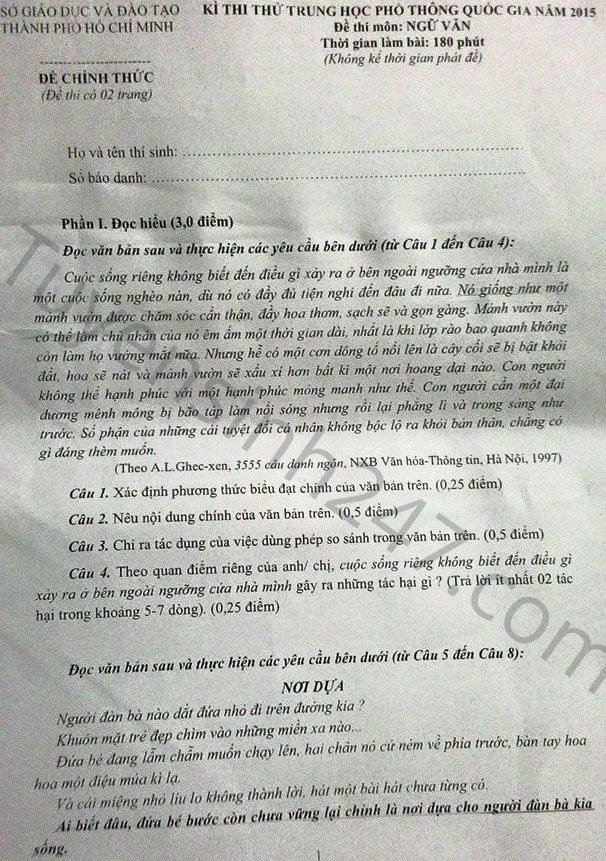 SỞ GIÁO DỤC VÀ ĐÀO TẠO
THÀNH PHỐ HỒ CHÍ MINH
KÌ THI THỬ TRUNG HỌC PHỔ THÔNG QUỐC GIA NĂM 2015
Đề thi môn: NGỮ VĂN
Thời gian làm bài: 180 phút
(Không kể thời gian phát đề)
ĐỀ CHÍNH THỨC
(Đề thi có 02 trang)
Họ và tên thí sinh:
Số báo danh:
Phần I. Đọc hiểu (3,0 điểm)
Đọc văn bản sau và thực hiện các yêu cầu bên dưới (từ Câu 1 đến Câu 4):
Cuộc sống riêng không biết đến điều gì xảy ra ở bên ngoài ngưỡng cửa nhà mình là
một cuộc sống nghèo nàn, dù nó có đầy đủ tiện nghi đến đâu đi nữa. Nó giống như một
mảnh vườn được chăm sóc cẩn thận, đầy hoa thơm, sạch sẽ và gọn gàng. Mảnh vườn này
có thể làm chủ nhân của nó êm ấm một thời gian dài, nhất là khi lớp rào bao quanh không
còn làm họ vướng mắt nữa. Nhưng hễ có một cơn dông tố nổi lên là cây cối sẽ bị bật khỏi
đất, hoa sẽ nát và mảnh vườn sẽ xấu xí hơn bất kì một nơi hoang dại nào. Con người
không thể hạnh phúc với một hạnh phúc mong manh như thế. Con người cần một đại
dương mênh mông bị bão táp làm nổi sóng nhưng rồi lại phẳng lì và trong sáng như
trước. Số phận của những cái tuyệt đối cá nhân không bộc lộ ra khỏi bản thân, chẳng có
gì đáng thèm muốn.
(Theo A.L.Ghec-xen, 3555 câu danh ngôn, NXB Văn hóa-Thông tin, Hà Nội, 1997)
Câu 1. Xác định phương thức biểu đạt chính của văn bản trên. (0,25 điểm)
Câu 2. Nêu nội dung chính của văn bản trên. (0,5 điểm)
Câu 3. Chỉ ra tác dụng của việc dùng phép so sánh trong văn bản trên. (0,5 điểm)
Câu 4. Theo quan điểm riêng của anh/ chị, cuộc sống riêng không biết đến điều gì
xảy ra ở bên ngoài ngưỡng cửa nhà mình gây ra những tác hại gì ? (Trả lời ít nhất 02 tác
hại trong khoảng 5-7 dòng). (0,25 điểm)
Đọc văn bản sau và thực hiện các yêu cầu bên dưới (từ Câu 5 đến Câu 8):
NƠI DỰA
Người đàn bà nào dắt đứa nhỏ đi trên đường kia ?
Khuôn mặt trẻ đẹp chìm vào những miền xa nào...
Đứa bé đang lẫm chẫm muốn chạy lên, hai chân nó cứ ném về phía trước, bàn tay hoa
hoa một điệu múa kì lạ.
Và cái miệng nhỏ líu lo không thành lời, hát một bài hát chưa từng có.
Ai biết đâu, đứa bé bước còn chưa vững lại chính là nơi dựa cho người đàn bà kia
sống.
Tuyensinh247.com